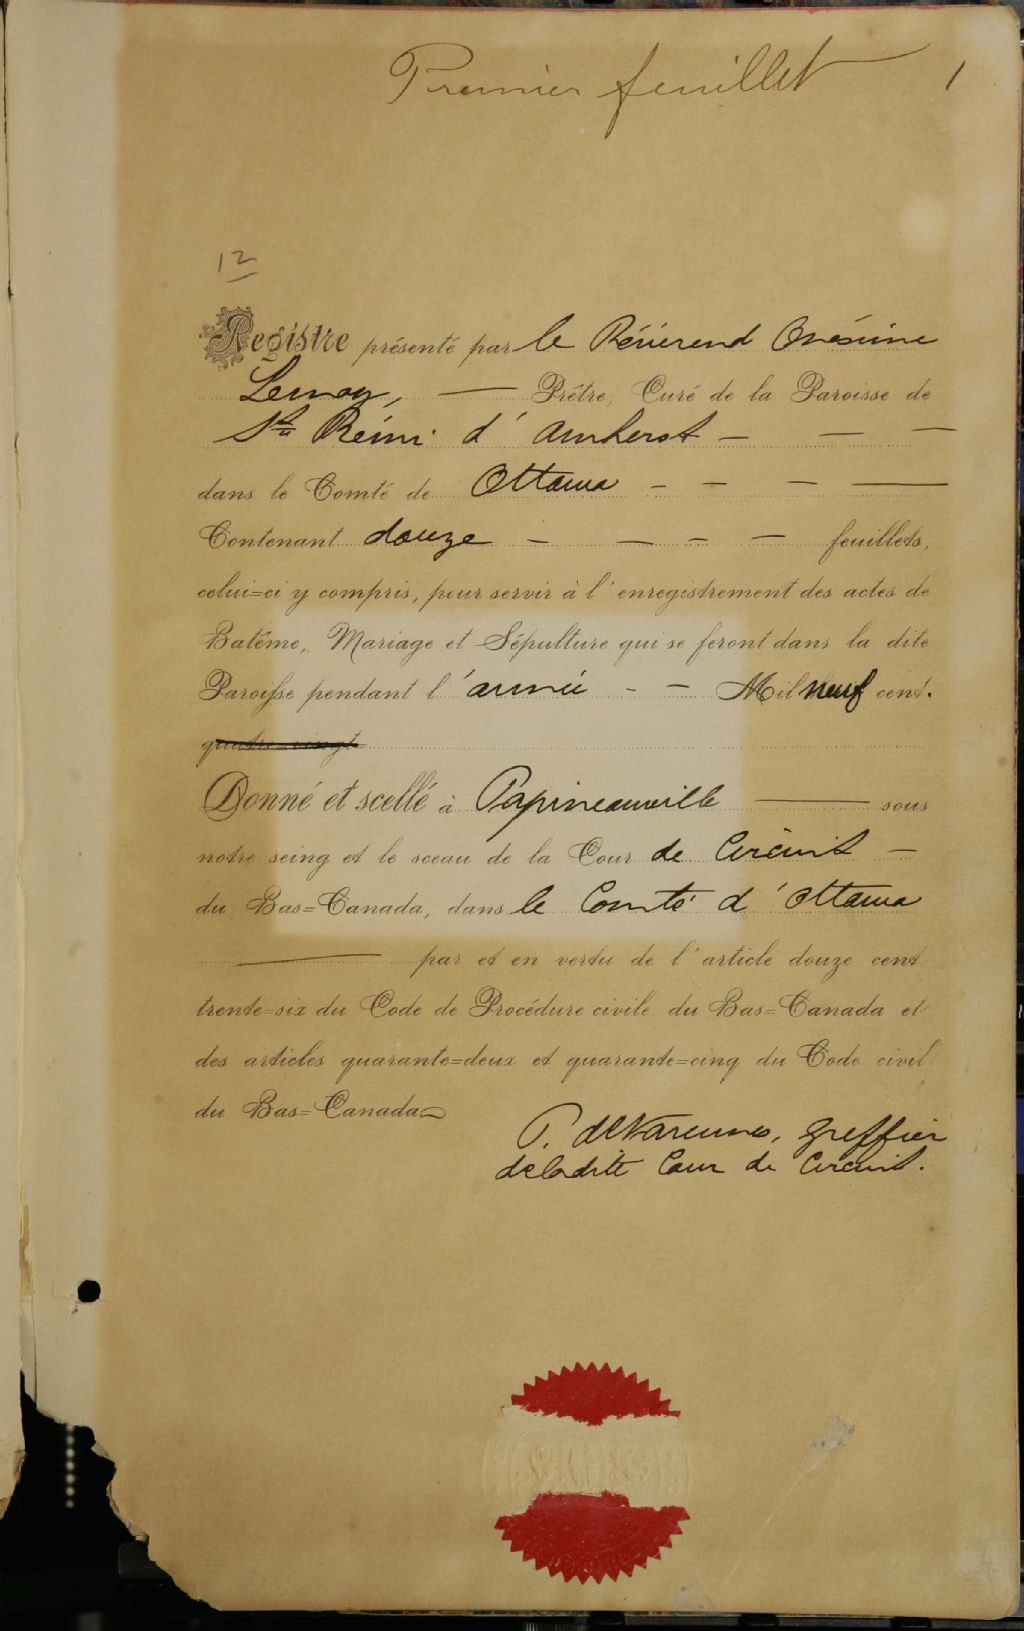 Premier feuillet 1
12
Registre présenté par le Révérend Onésime
Lemay, — Prêtre, Curé de la Paroisse de
St Rémi d'Amherst — — —
dans le Comté de Ottawa - - - —
Contenant douze - — - — feuillets,
celui=ci y compris, pour servir à l'enregistrement des actes de
Batême, Mariage et Sépulture qui se feront dans la dite
Paroisse pendant l'année - - Mil neuf cent.
quatre-vingt
Donné et scellé à Papineauville — sous
notre seing et le sceau de la Cour de Circuit —
du Bas=Canada, dans le Comté d'Ottawa
— par et en vertu de l'article douze cent
trente=six du Code de Procédure civile du Bas=Canada et
des articles quarante=deux et quarante=cinq du Code civil
du Bas=Canada—
P. deVarennes, Greffier
deladite Cour de Circuit.